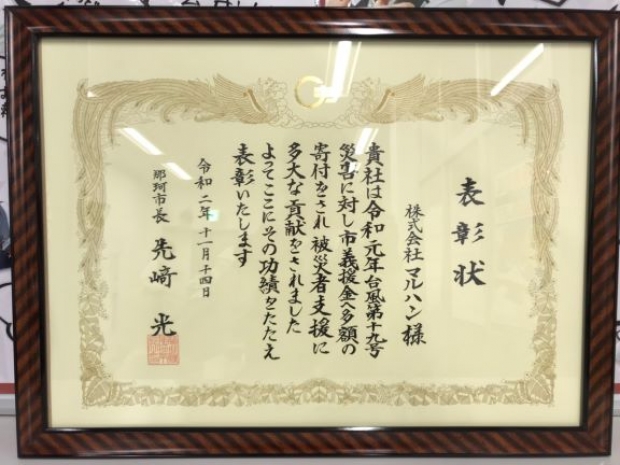 表彰状
株式会社マルハン様
貴社は令和元年台風第十九号
災害に対し市義援金へ多額の
寄付をされ被災者支援に
多大な貢献をされました
よってここにその功績をたたえ
表彰いたします
令和二年十一月十四日
那珂市長 先﨑 光